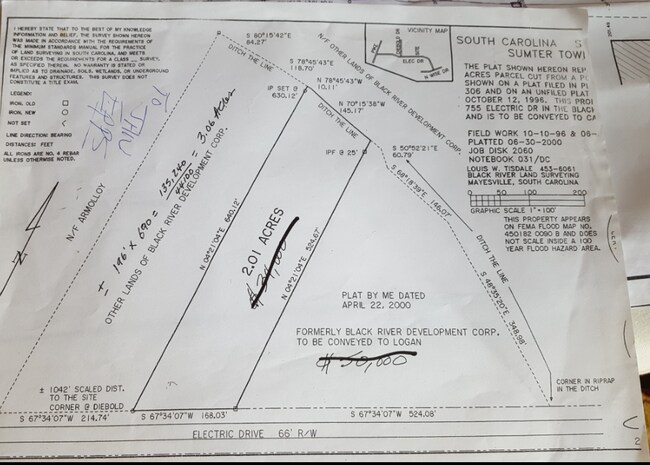 I HEREBY STATE THAT TO THE BEST OF MY KNOWLEDGE
INFORMATION AND BELIEF, THE SURVEY SHOWN HEREON
WAS MADE IN ACCORDANCE WITH THE REQUIREMENTS OF
THE MINIMUM STANDARDS MANUAL FOR THE PRACTICE
OF LAND SURVEYING IN SOUTH CAROLINA, AND MEETS
OR EXCEEDS THE REQUIREMENTS FOR A CLASS __ SURVEY,
AS SPECIFIED THEREIN. NO WARRANTY IS STATED OR
IMPLIED AS TO DRAINAGE, SOILS, WETLANDS, OR UNDERGROUND
FEATURES AND STRUCTURES. THIS SURVEY DOES NOT
CONSTITUTE A TITLE EXAM.
LEGEND:
IRON, OLD
IRON, NEW
NOT SET
LINE DIRECTION: BEARING
DISTANCES: FEET
ALL IRONS ARE NO. 4 REBAR
UNLESS OTHERWISE NOTED.
TO
S 80°15'42"E
84.27'
DITCH THE LINE
S 78°45'43"E
118.70'
N/F OTHER LANDS OF BLACK RIVER DEVELOPMENT CORP.
VICINITY MAP
SITE
ELEC DR
N WISE DR
IP SET @
630.12'
N 78°45'43"W
10.11'
DITCH THE LINE
N 70°15'38"W
145.17'
IPF @ 25'
S 50°52'21"E
60.79'
S 68°18'39"E 146.07'
DITCH THE LINE
S 48°35'20"E 348.98'
SOUTH CAROLINA S
SUMTER TOW
THE PLAT SHOWN HEREON
ACRES PARCEL CUT FROM A
SHOWN ON A PLAT FILED IN
306 AND ON AN UNFILED PLAT
OCTOBER 12, 1996. THIS
755 ELECTRIC DR IN THE
AND IS TO BE CONVEYED TO
FIELD WORK 10-10-96 & 06-
PLATTED 06-30-2000
JOB DISK 2060
NOTEBOOK 031/DC
LOUIS W. TISDALE 453-6061
BLACK RIVER LAND SURVEYING
MAYESVILLE, SOUTH CAROLINA
0 50 100 200
GRAPHIC SCALE 1"=100'
THIS PROPERTY APPEARS
ON FEMA FLOOD MAP NO.
450182 0090 B AND DOES
NOT SCALE INSIDE A 100
YEAR FLOOD HAZARD AREA.
N/F ARMOLLOY
± 196' x 690 = 135,240 = 3.06 Acres
44100
OTHER LANDS OF BLACK RIVER DEVELOPMENT CORP.
N 04°21'04"E 640.12'
2.01 ACRES
N 04°21'04"E 524.67'
PLAT BY ME DATED
APRIL 22, 2000
FORMERLY BLACK RIVER DEVELOPMENT CORP.
TO BE CONVEYED TO LOGAN
$ 50,000
± 1042' SCALED DIST.
TO THE SITE
CORNER @ DIEBOLD
CORNER IN RIPRAP
IN THE DITCH
S 67°34'07"W 214.74'
S 67°34'07"W 168.03'
S 67°34'07"W 524.08'
ELECTRIC DRIVE 66' R/W
2